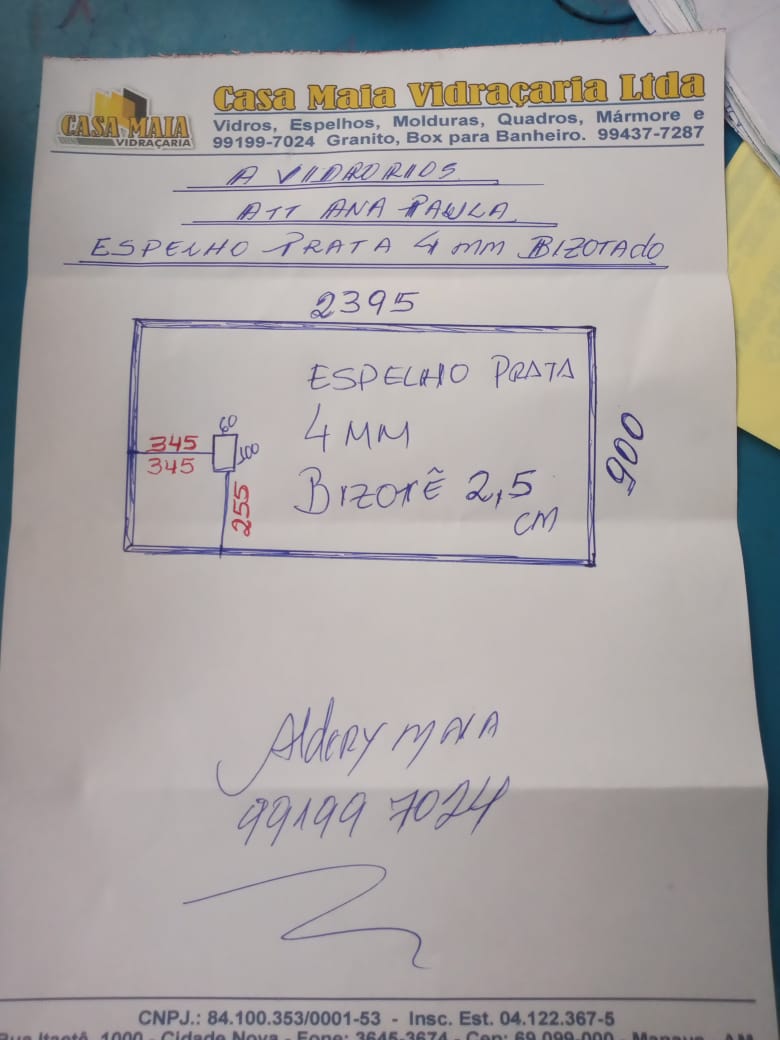 CASA MAIA
VIDRAÇARIA
Casa Maia Vidraçaria Ltda
Vidros, Espelhos, Molduras, Quadros, Mármore e
99199-7024 Granito, Box para Banheiro. 99437-7287
A VIDRORIOS
ATT ANA PAULA
ESPELHO PRATA 4 mm BIZOTADO
2395
ESPELHO PRATA
4 MM
BIZOTÊ 2,5
CM
60
100
345
345
255
900
Aldery MAIA
99199 7024
CNPJ.: 84.100.353/0001-53 - Insc. Est. 04.122.367-5
Rua Itaetê, 1000 - Cidade Nova - Fone: 3645-3674 - Cep: 69.099-000 - Manaus - AM